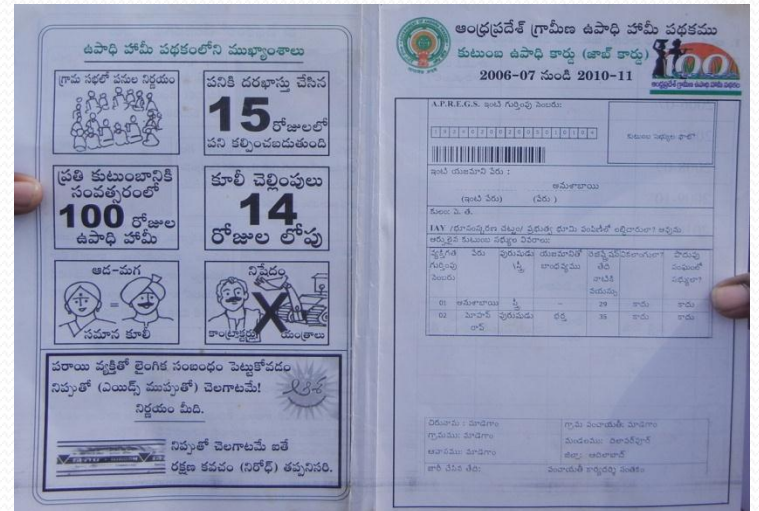 ఉపాధి హామీ పథకంలోని ముఖ్యాంశాలు
గ్రామ సభలో పనుల నిర్ణయం
పనికి దరఖాస్తు చేసిన
15 రోజులలో
పని కల్పించబడుతుంది
ప్రతి కుటుంబానికి
సంవత్సరంలో
100 రోజుల
ఉపాధి హామీ
కూలీ చెల్లింపులు
14
రోజుల లోపు
ఆడ-మగ
=
సమాన కూలి
నిషేధం
X
కాంట్రాక్టర్లు యంత్రాలు
పరాయి వ్యక్తితో లైంగిక సంబంధం పెట్టుకోవడం
నిప్పుతో (ఎయిడ్స్ ముప్పుతో) చెలగాటమే!
నిర్ణయం మీది.
ఆశ
నిప్పుతో చెలగాటమే ఐతే
రక్షణ కవచం (నిరోధ్) తప్పనిసరి.
ఆంధ్రప్రదేశ్ గ్రామీణ ఉపాధి హామీ పథకము
కుటుంబ ఉపాధి కార్డు (జాబ్ కార్డు)
2006-07 నుండి 2010-11
100
ఆంధ్రప్రదేశ్ గ్రామీణ ఉపాధి హామీ పథకం
A.P.R.E.G.S. ఇంటి గుర్తింపు నెంబరు:
కుటుంబ సభ్యుల ఫొటో
ఇంటి యజమాని పేరు :
అనుశాబాయి
(ఇంటి పేరు) (పేరు )
కులం: ఎ. త.
IAY /భూసంస్కరణ చట్టం/ ప్రభుత్వ భూమి పంపిణీలో లబ్ధిదారులా? అవును
అర్హులైన కుటుంబ సభ్యుల వివరాలు:
వ్యక్తిగత గుర్తింపు నెంబరు పేరు పురుషుడు /స్త్రీ యజమానితో బాంధవ్యము రిజిస్ట్రేషన్ తేది నాటికి వయస్సు వికలాంగులా? పొదుపు సంఘంలో సభ్యులా?
01 అనుశాబాయి స్త్రీ - 29 కాదు కాదు
02 మోహన్ రావ్ పురుషుడు భర్త 35 కాదు కాదు
చిరునామ : మాడగాం
గ్రామ పంచాయతీ: మాడగాం
గ్రామము: మాడగాం
మండలము: దిలావర్‌పూర్
ఆవాసము: మాడగాం
జిల్లా: ఆదిలాబాద్
జారీ చేసిన తేది:
పంచాయతీ కార్యదర్శి సంతకం